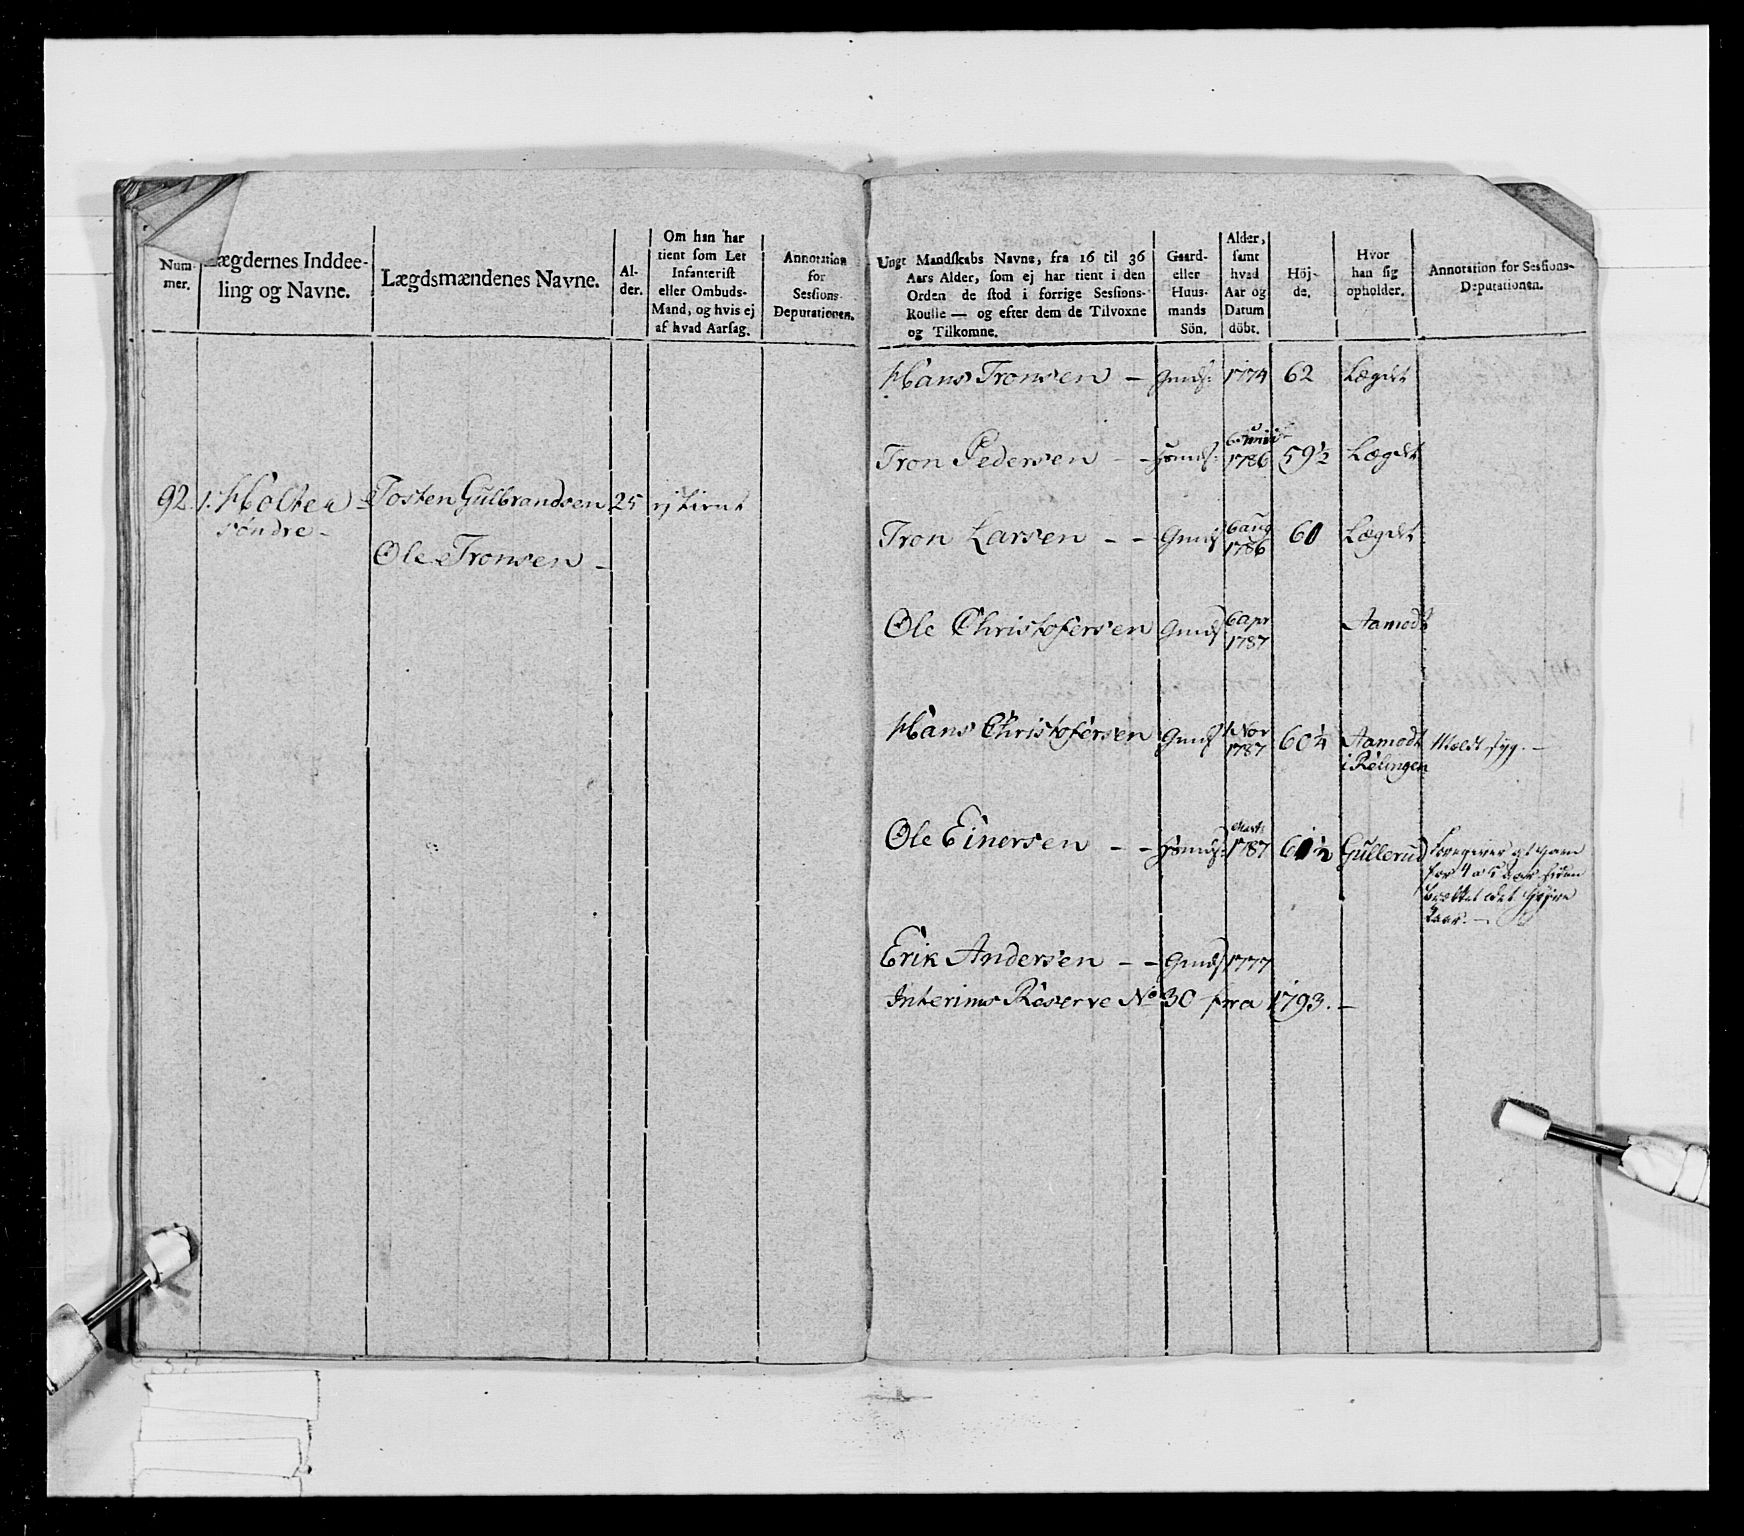 Num-
mer.
Lægdernes Inddee-
ling og Navne.
Lægdsmændenes Navne.
Al-
der.
Om han har
tient som Let
Infanterist
eller Ombuds-
Mand, og hvis ej
af hvad Aarsag.
Annotation
for
Sessions-
Deputationen.
92. 1. Holter Tosten Gulbrandsen 25 ej tient
søndre -
Ole Tronsen -
Ungt Mandskabs Navne, fra 16 til 36
Aars Alder, som ej har tient i den
Orden de stod i forrige Sessions-
Roulle — og efter dem de Tilvoxne
og Tilkomne.
Gaard-
eller
Huus-
mands
Sön.
Alder,
samt
hvad
Aar og
Datum
döbt.
Höj-
de.
Hvor
han sig
opholder.
Annotation for Sessions-
Deputationen.
Hans Tronsen - Gmds: 1774 62 Lægdet
Tron Pedersen - - Hsmds: 6 Junii 1786 59½ Lægdet
Tron Larsen - - Gmds 6 aug 1786 60 Lægdet
Ole Christofersen Gmds 6 apr 1787 Aamodt
Hans Christofersen Gmds 1 Nov 1787 60¼ Aamodt Meldt syg. -
i Rølingen
Ole Einersen - - Hsmds: Marts 1787 Gullerud foregiver at have
for 4 a 5 aar siden
brækket det høyre
Laar. -
Erik Andersen - - Gmds 1777
Interims Reserve No 30 fra 1793. -